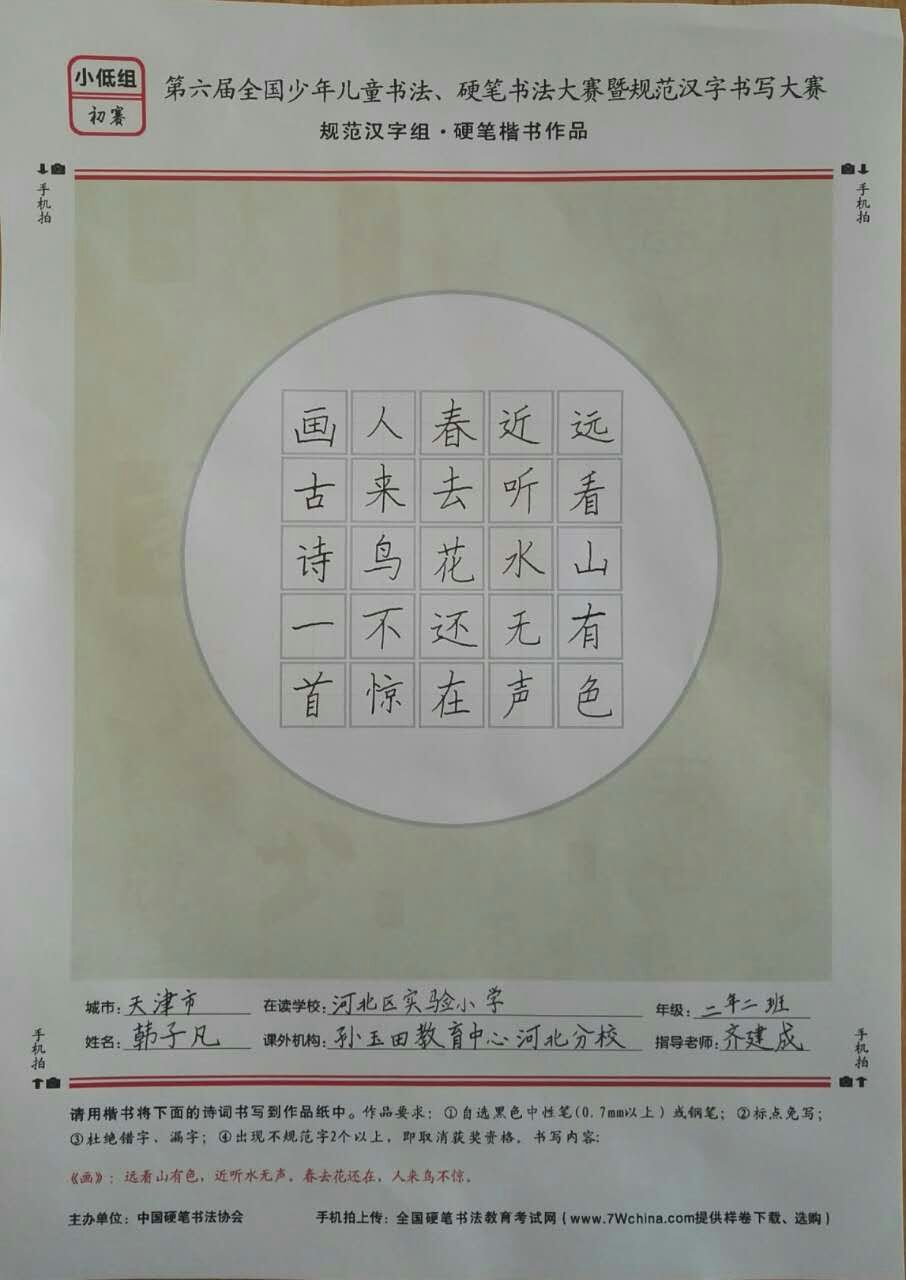 小低组
初赛
第六届全国少年儿童书法、硬笔书法大赛暨规范汉字书写大赛
规范汉字组·硬笔楷书作品
手机拍
手机拍
远看山有色
近听水无声
春去花还在
人来鸟不惊
画古诗一首
城市：天津市 在读学校：河北区实验小学 年级：二年二班
姓名：韩子凡 课外机构：孙玉田教育中心河北分校 指导老师：齐建成
手机拍
手机拍
请用楷书将下面的诗词书写到作品纸中。作品要求：①自选黑色中性笔(0.7mm以上）或钢笔；②标点免写；
③杜绝错字、漏字；④出现不规范字2个以上，即取消获奖资格。书写内容：
《画》：远看山有色，近听水无声。春去花还在，人来鸟不惊。
主办单位：中国硬笔书法协会 手机拍上传：全国硬笔书法教育考试网（www.7Wchina.com提供样卷下载、选购）